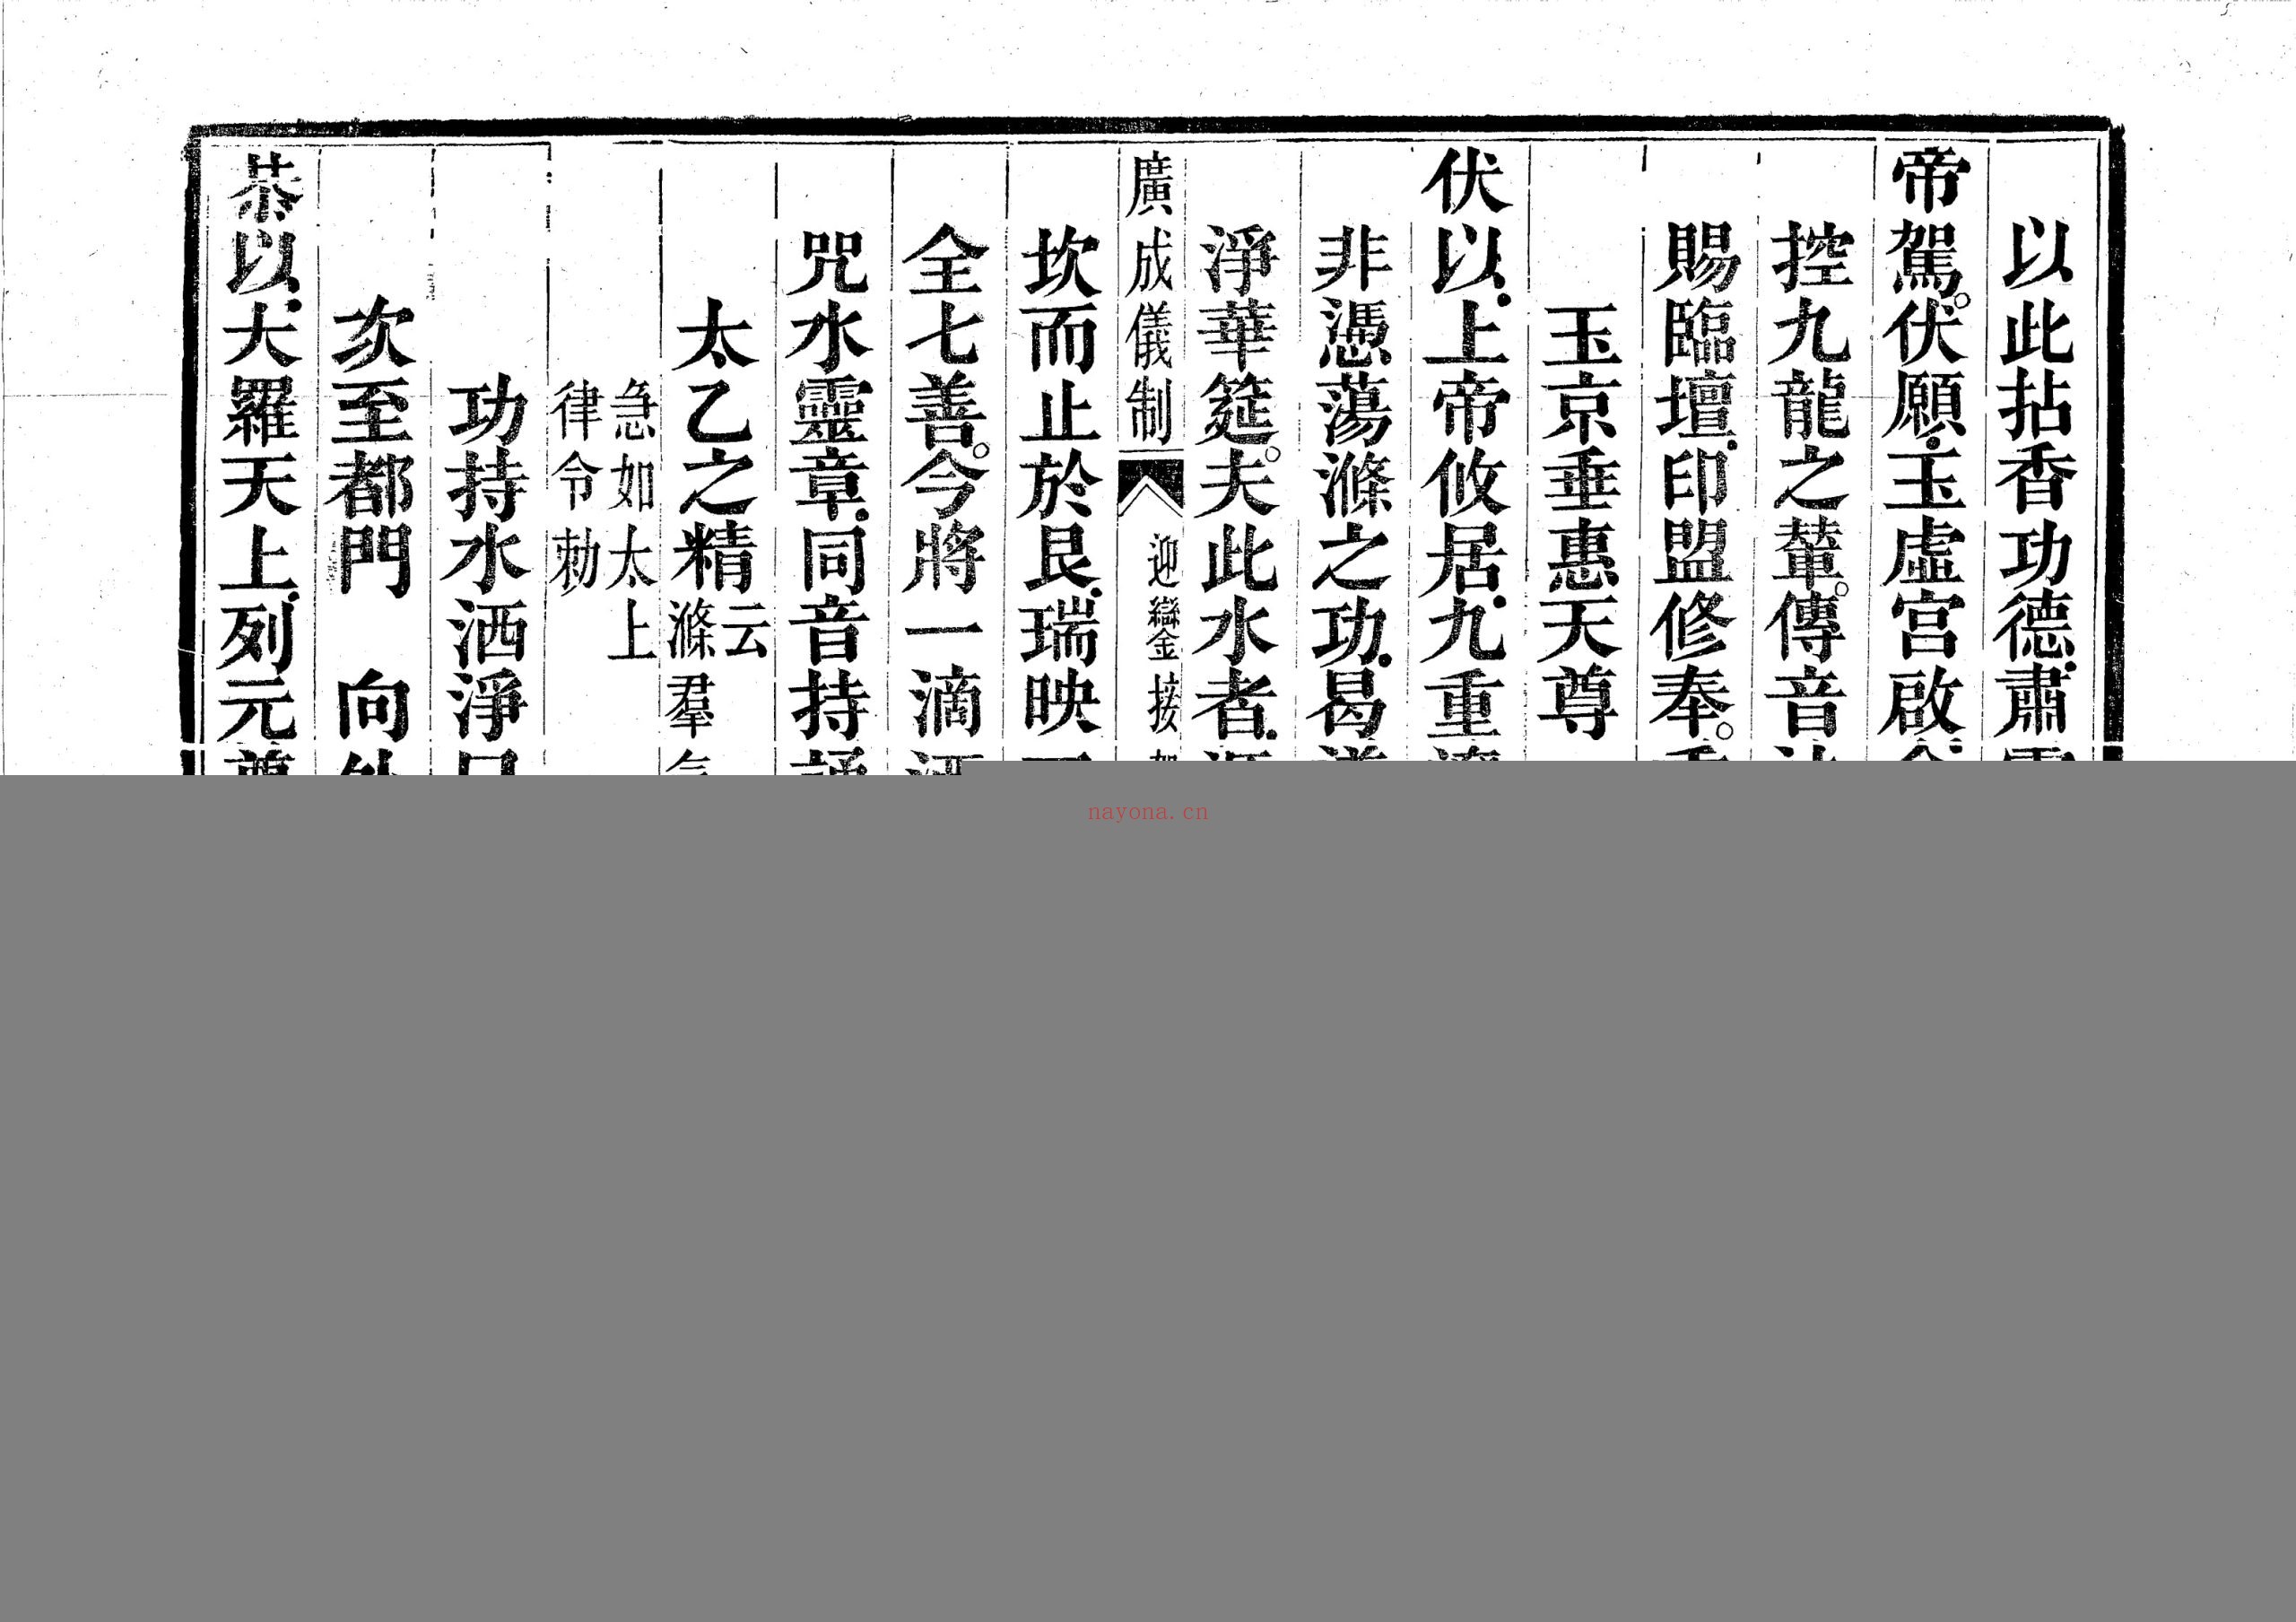 以此拈香功德肅
帝駕伏願玉虛宫啟
控九龍之輦傳音
賜臨壇印盟修奉
玉京垂惠天尊
伏以上帝攸居九重
非憑蕩滌之功曷
淨華筵夫此水者
廣成儀制 迎鑾金接
坎而止於艮瑞映
全七善今將一滴
咒水靈章同音持
太乙之精云滌羣
急如太上
律令勅
功持水洒淨
次至都門 向
恭以大羅天上列元
nayona.cn